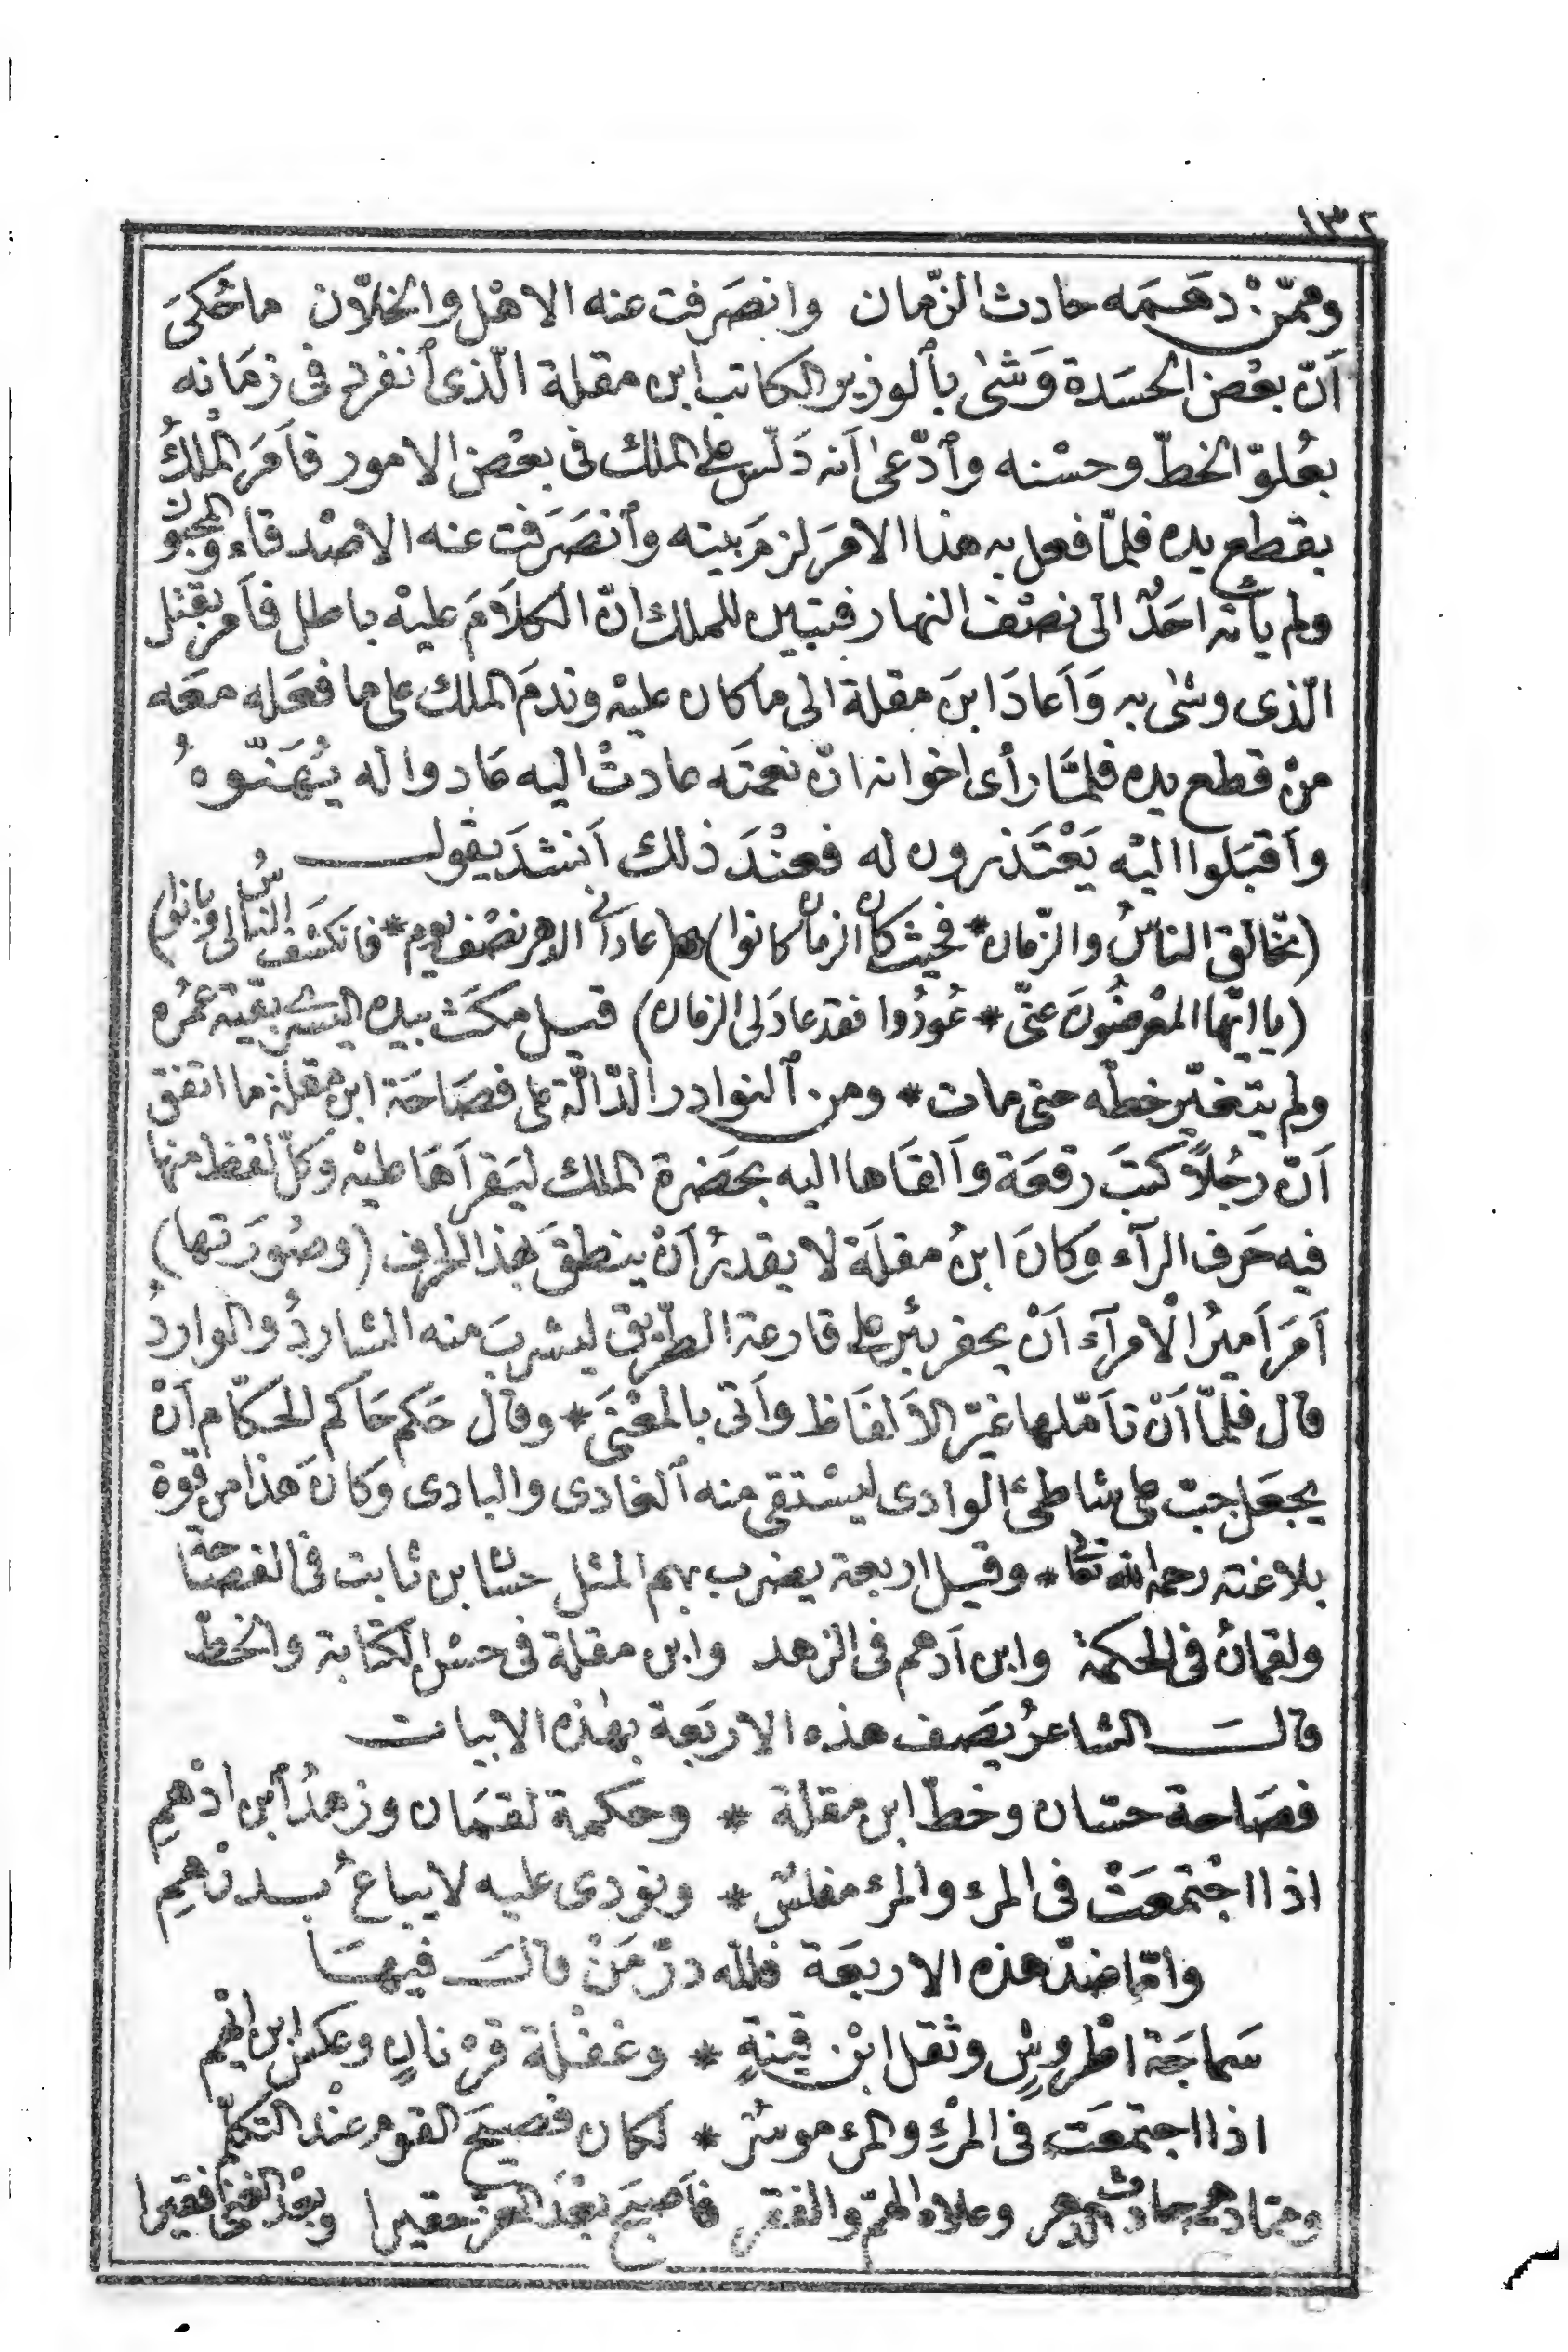 ١٣٢
وممّنْ دَهَمَه حادث الزّمان وانصَرفت عنه الاهْل والخلاّن ماحُكىَ
أَنّ بعْض الحسَدة وَشىٰ بألوزير الكاتب ابن مقلة الّذى ٱنفرد فى زمَانه
بعُلوّ الخطّ وحسْنه وٱدّعىٰ أَنه دَلّس على الملك فى بعْض الامور فأَمَر المْلكُ
بقطع يده فلمّا فعل به هذا الامرَ لزمَ بيته وٱنصَرَفت عنه الاصْدقاء والمحبوّن
ولم يأته احَدٌ الى نصْف النهار فتبين للملك انّ الكلاَمَ عليْه باطل فأمَر بقتل
الّذى وشٰى به وَأَعادَ ابنَ مقلة الى ما كان عليْه وندمَ الملك على ما فعَله معَه
منْ قطع يده فلمَّا رأى اخوانه انّ نعمتَه عادتْ اليه عَادوا له يُهَنّوهُ
وأقبَلوا اليْه يَعْتَذرون له فعنْدَ ذلك أَنشدَ يقول
(تخالق الناسُ والزّمان * فحيث كان الزمان كانوا) (عادانى الدهر نصْف يوم * فانكشف الناسُ لى وبانوا)
(يا ايّها المعْرضُونَ عنّى * عُودُوا فقد عادَ لى الزمان) قيل مكَثَ بيده اليسْرى بقية عُمُره
ولم يتغيّر خطّه حتى مات * ومن ٱلنوادر الدّالّة على فصَاحَة ابن مقلة ما اتفق
أَنّ رجُلاً كتبَ رقعَة وأَلقاها اليه بحَضرة الملك ليَقرأهَا عليْه وَكلّ لفظ منها
فيه حَرف الرآء وَكانَ ابنُ مقلَة لا يقدرُ أَنْ ينطقَ بهذا الحرف (وصُورَتها)
أَمَرَ أَميرُ الْأمرآء أَنْ يحفر بئر على قارعة الطّريق ليشربَ منه الشاردُ والواردُ
قال فلمّا أَنْ تأمّلها غيّر الأَلفَاظ وأَتى بالمعْنىَ * وقال حَكم حَاكم الحكّام أَنْ
يجعَل جبّ على شاطئ الوادى ليسْتقى منه ٱلغادى والبادى وكانَ هذا من قوّة
بلاغته رحمه الله تعالى * وقيل اربعة يضرب بهم المثل حسّان بن ثابت فى الفصَاحة
ولقمانُ فى الحكمة وابن أدهم فى الزهد وابن مقلة فى حسْن الكتابة والخطّ
قالَ الشاعرُ يصَف هذه الاربَعة بهٰذه الابيات
فصَاحة حسّان وخطّ ابن مقلة * وحكمة لقمَان وزهدُ ٱبن ادْهمِ
اذا اجْتمعَتْ فى المرء والمرء مفلسٌ * ونودى عليه لا يباعُ بدرْهمِ
وامّا ضدّ هذه الاربعَة فللّه درّ مَنْ قالَ فيهَا
سَماجَة اطْروشٍ وثقل ابْن قينةٍ * وغفْلة قرْنانٍ وعكس ابن ايْهم
اذا اجتمعَت فى المرْءِ والمرء موسُرٌ * لكان فصيحَ القوم عنْد التكلّمِ
وممّا دهمه حادث الدهر وعلاه الهمّ والفقر فأصبحَ بعْدَ العزّ حقيرا وبعْد الغنى فقيرا